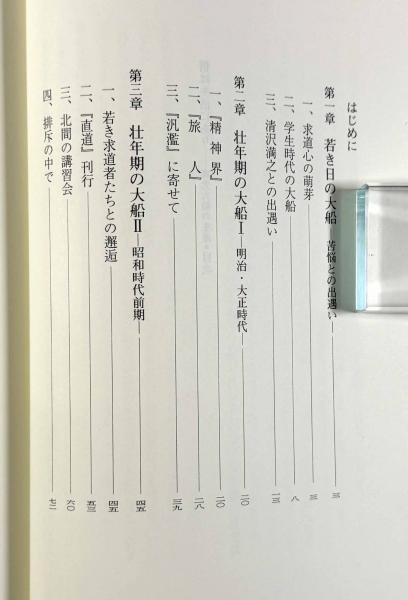 はじめに
第一章 若き日の大船―苦悩との出遇い― 三
一、求道心の萌芽 三
二、学生時代の大船 八
三、清沢満之との出遇い 一三
第二章 壮年期の大船Ⅰ―明治・大正時代 二〇
一、『精神界』 二〇
二、『旅人』 二八
三、『汎濫』に寄せて 三九
第三章 壮年期の大船Ⅱ―昭和時代前期― 四五
一、若き求道者たちとの邂逅 四五
二、『直道』刊行 五三
三、北間の講習会 六〇
四、排斥の中で 七二